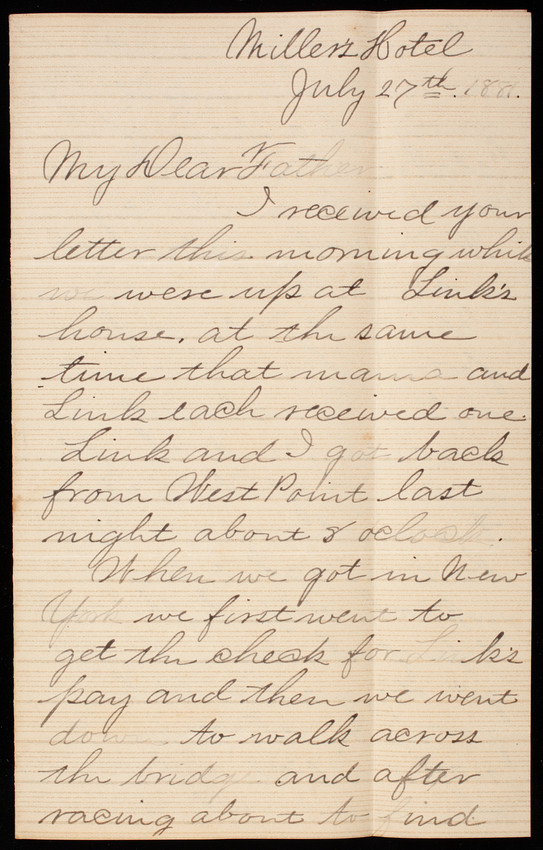 Miller's Hotel
July 27th.
My Dear Father
I received your
letter this morning while
we were up at Link's
house. at the same
time that mama and
Link each received one.
Link and I got back
from West Point last
night about 8 oclock.
When we got in New
York we first went to
get the check for Link's
pay and then we went
down to walk across
the bridge and after
racing about to find